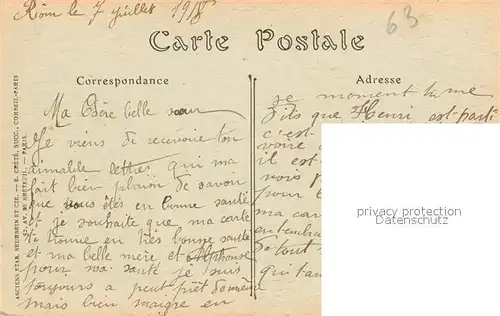 Riom le 7 juillet 19
63
Carte Postale
Correspondance
Adresse
Ma Chère belle sœur
Je viens de recevoire ton
aimable lettre qui ma
fait bien plaisir de savoir
que vous êtes en bonne santé
et je souhaite que ma carte
te trouve en très bonne santé
et ma belle mère et Alphonse
pour ma santé je suis
toujours a peut près de même
mais bien maigre en
ce moment tu me
dits que Henri est parti
c'est
voire
il est
vois
pour
ma car
Se tout
qui t
privacy protection
ANCIENS ETAB. NEURDEIN ET CIE. — E. CRÉTÉ, SUCC., CORBEIL-PARIS
AV. DE BRETEUIL - PARIS